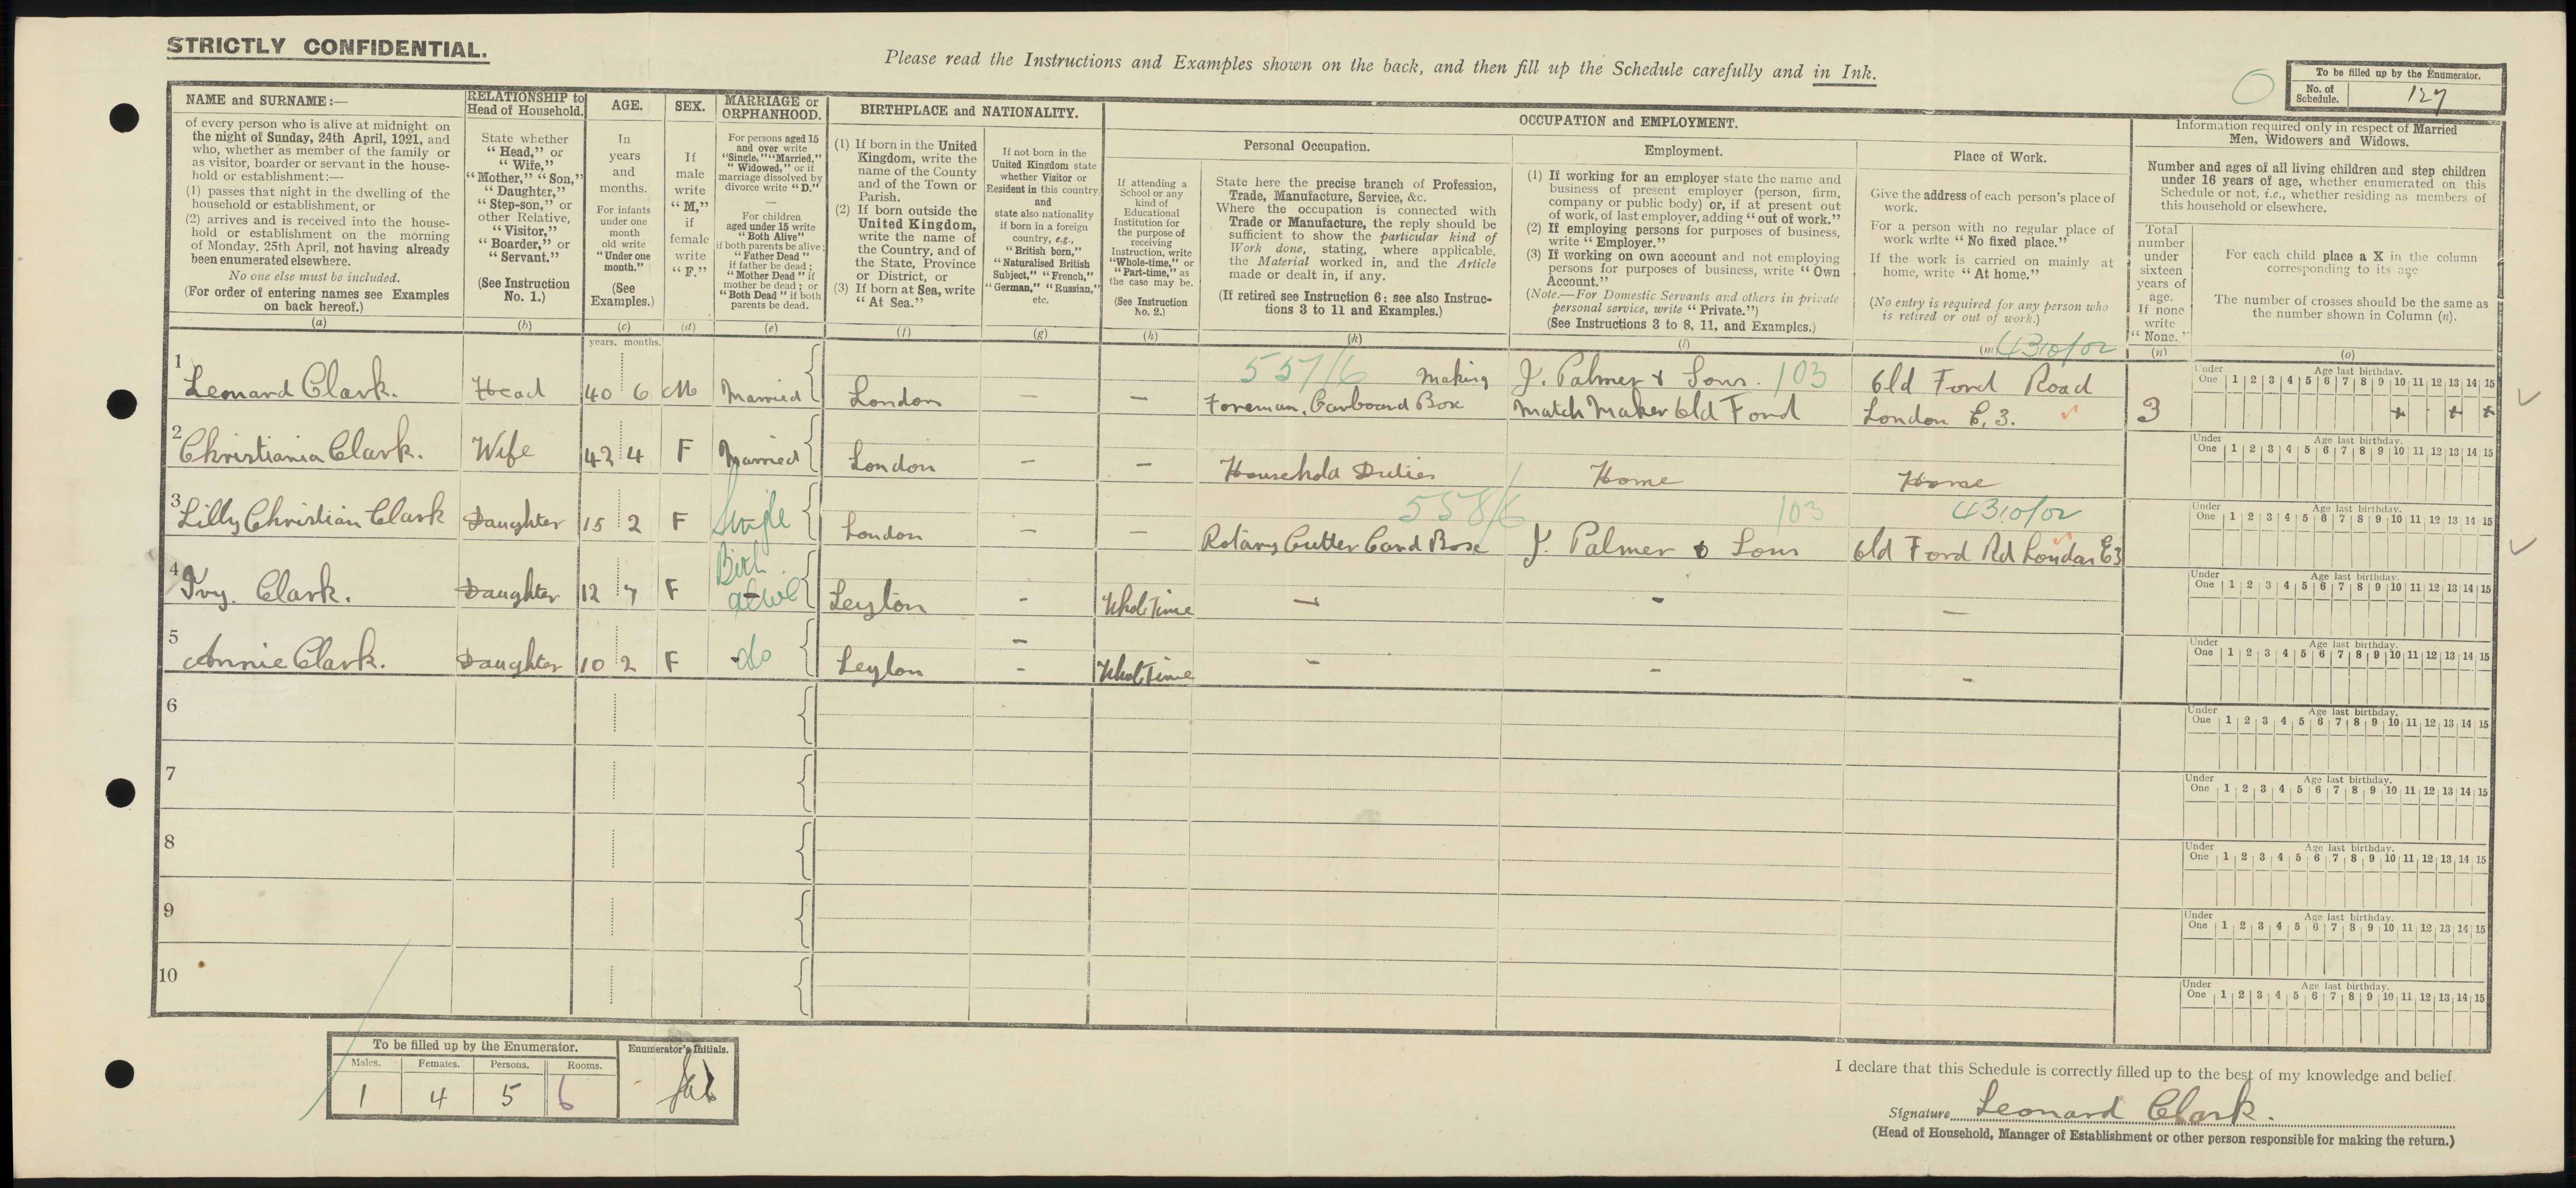 STRICTLY CONFIDENTIAL.
Please read the Instructions and Examples shown on the back, and then fill up the Schedule carefully and in Ink.
To be filled up by the Enumerator.
No. of Schedule. 127
NAME and SURNAME:—
of every person who is alive at midnight on
the night of Sunday, 24th April, 1921, and
who, whether as member of the family or
as visitor, boarder or servant in the house-
hold or establishment:—
(1) passes that night in the dwelling of the
household or establishment, or
(2) arrives and is received into the house-
hold or establishment on the morning
of Monday, 25th April, not having already
been enumerated elsewhere.
No one else must be included.
(For order of entering names see Examples
on back hereof.)
(a)
RELATIONSHIP to
Head of Household.
State whether
"Head," or
"Wife,"
"Mother," "Son,"
"Daughter,"
"Step-son," or
other Relative,
"Visitor,"
"Boarder," or
"Servant."
(See Instruction
No. 1.)
(b)
AGE.
In
years
and
months.
For infants
under one
month
old write
"Under one
month."
(See
Examples.)
(c)
SEX.
If
male
write
"M,"
if
female
write
"F."
(d)
MARRIAGE or
ORPHANHOOD.
For persons aged 15
and over write
"Single," "Married,"
"Widowed," or if
marriage dissolved by
divorce write "D."
—
For children
aged under 15 write
"Both Alive"
if both parents be alive;
"Father Dead"
if father be dead;
"Mother Dead" if
mother be dead; or
"Both Dead" if both
parents be dead.
(e)
BIRTHPLACE and NATIONALITY.
(1) If born in the United
Kingdom, write the
name of the County
and of the Town or
Parish.
(2) If born outside the
United Kingdom,
write the name of
the Country, and of
the State, Province
or District, or
(3) If born at Sea, write
"At Sea."
(f)
If not born in the
United Kingdom state
whether Visitor or
Resident in this country,
and
state also nationality
if born in a foreign
country, e.g.,
"British born,"
"Naturalised British
Subject," "French,"
"German," "Russian,"
etc.
(g)
OCCUPATION and EMPLOYMENT.
Personal Occupation.
If attending a
School or any
kind of
Educational
Institution for
the purpose of
receiving
Instruction, write
"Whole-time," or
"Part-time," as
the case may be.
(See Instruction
No. 2.)
(h)
State here the precise branch of Profession,
Trade, Manufacture, Service, &c.
Where the occupation is connected with
Trade or Manufacture, the reply should be
sufficient to show the particular kind of
Work done, stating, where applicable,
the Material worked in, and the Article
made or dealt in, if any.
(If retired see Instruction 6; see also Instruc-
tions 3 to 11 and Examples.)
(k)
Employment.
(1) If working for an employer state the name and
business of present employer (person, firm,
company or public body) or, if at present out
of work, of last employer, adding "out of work."
(2) If employing persons for purposes of business,
write "Employer."
(3) If working on own account and not employing
persons for purposes of business, write "Own
Account."
(Note.—For Domestic Servants and others in private
personal service, write "Private.")
(See Instructions 3 to 8, 11, and Examples.)
(l)
Place of Work.
Give the address of each person's place of
work.
For a person with no regular place of
work write "No fixed place."
If the work is carried on mainly at
home, write "At home."
(No entry is required for any person who
is retired or out of work.)
(m)
Information required only in respect of Married
Men, Widowers and Widows.
Number and ages of all living children and step children
under 16 years of age, whether enumerated on this
Schedule or not, i.e., whether residing as members of
this household or elsewhere.
Total
number
under
sixteen
years of
age.
If none
write
"None."
(n)
For each child place a X in the column
corresponding to its age
The number of crosses should be the same as
the number shown in Column (n).
(o)
years. months.
557/6 103 4310/02
1 Leonard Clark. Head 40 6 M Married London — — Foreman, Carboard Box making J. Palmer & Sons. Match Maker Old Ford Old Ford Road London E, 3. 3
2 Christiania Clark. Wife 42 4 F Married London — — Household Duties Home Home
558/6 103 4310/02
3 Lilly Christian Clark Daughter 15 2 F Single London — — Rotary Cutter Card Box J. Palmer & Sons Old Ford Rd London E3
4 Ivy. Clark. Daughter 12 7 F Both alive Leyton - Whole Time — - —
5 Annie Clark. Daughter 10 2 F do Leyton - Whole Time - - -
6
7
8
9
10
Under One 1 2 3 4 5 6 7 8 9 10 11 12 13 14 15
Age last birthday.
To be filled up by the Enumerator.
Males. Females. Persons. Rooms.
1 4 5 6
Enumerator's Initials.
I declare that this Schedule is correctly filled up to the best of my knowledge and belief.
Signature Leonard Clark.
(Head of Household, Manager of Establishment or other person responsible for making the return.)